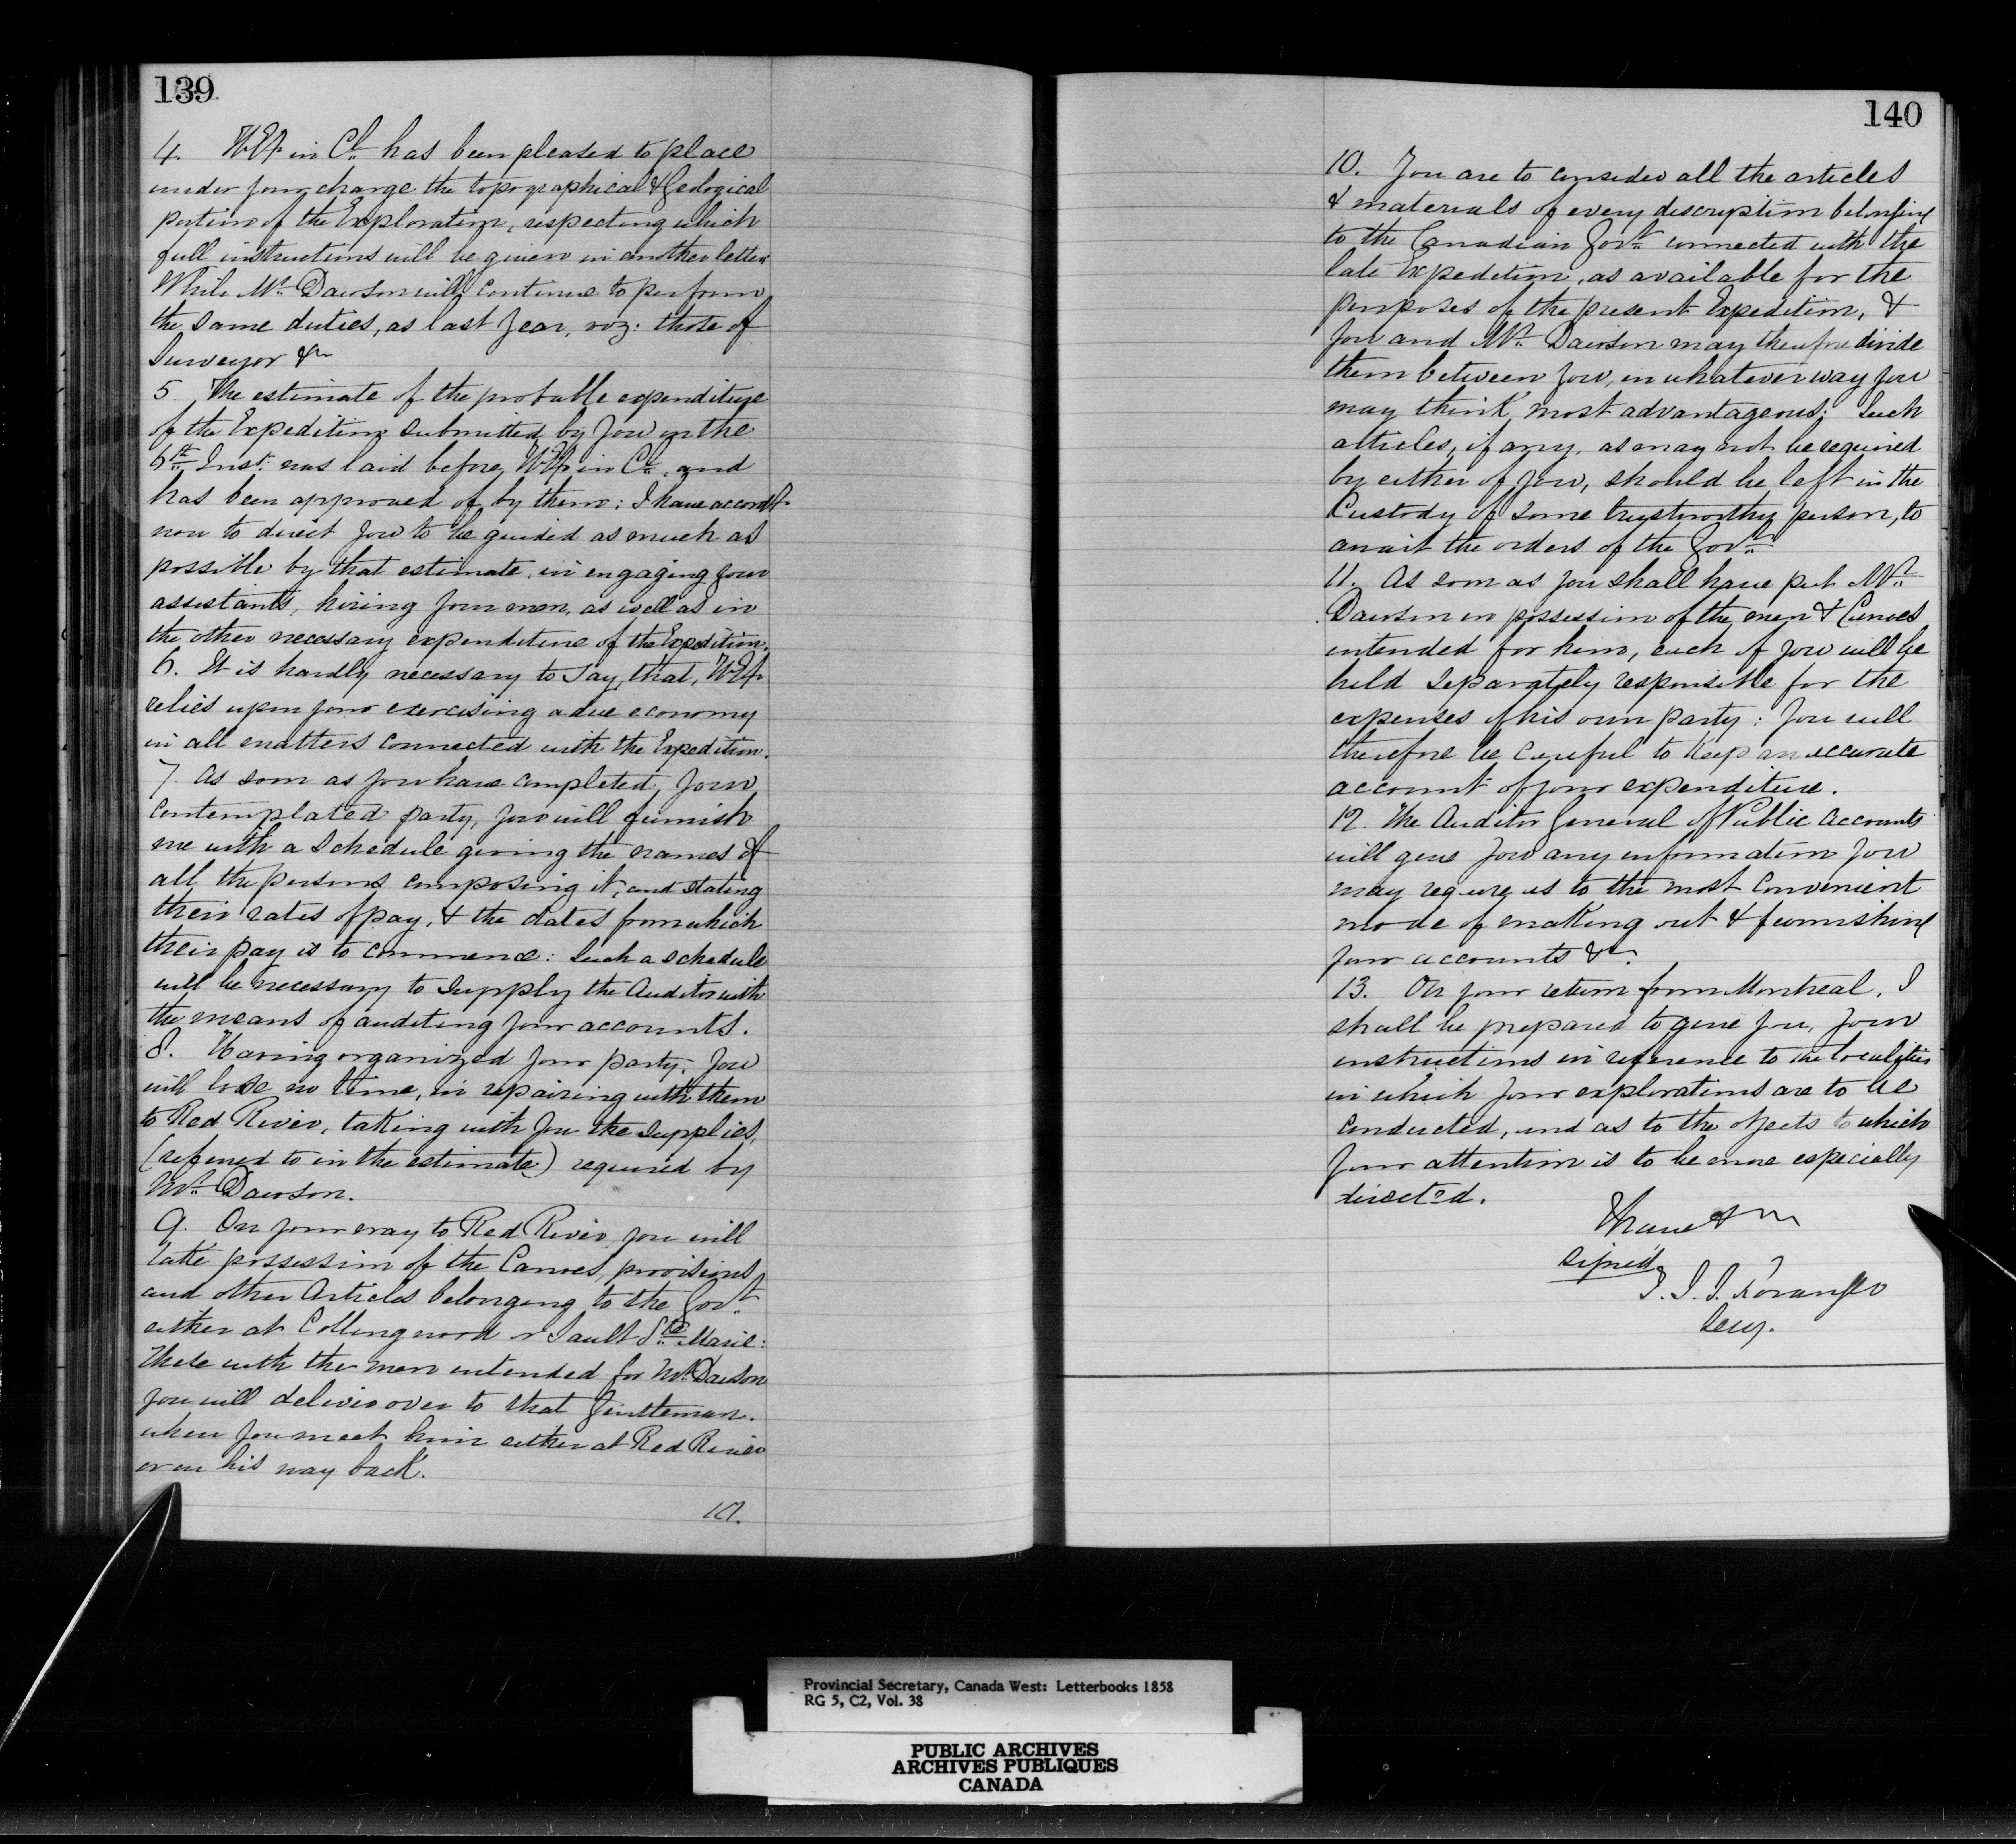 139
4. H.E. in Cl. has been pleased to place
under your charge the topographical & Geological
portion of the Exploration, respecting which
full instructions will be given in another letter
While Mr. Dawson will continue to perform
the same duties, as last year, viz: those of
Surveyor &c
5. The estimate of the probable expenditure
of the Expedition submitted by you on the
6th Inst. was laid before H.E. in Cl. and
has been approved of by them: I have accordly.
now to direct you to be guided as much as
possible by that estimate, in engaging your
assistants, hiring your men, as well as in
the other necessary expenditure of the Expedition.
6. It is hardly necessary to say, that, H.E.
relies upon your exercising a due economy
in all matters connected with the Expedition.
7. As soon as you have completed, your
contemplated party, you will furnish
me with a Schedule giving the names of
all the persons composing it, and stating
their rates of pay, & the dates from which
their pay is to commence: Such a schedule
will be necessary to supply the Auditor with
the means of auditing your accounts.
8. Having organized your party, you
will lose no time, in repairing with them
to Red River, taking with you the supplies,
(referred to in the estimate) required by
Mr. Dawson.
9. On your way to Red River you will
take possession of the Canoes, provisions
and other Articles belonging to the Govt.
either at Collingwood or Sault Ste. Marie:
These with the men intended for Mr. Dawson
you will deliver over to that Gentleman.
when you meet him either at Red River
or on his way back.
10.
140
10. You are to consider all the articles
& materials of every description belonging
to the Canadian Govt. connected with the
late Expedition, as available for the
purposes of the present Expedition, &
you and Mr. Dawson may therefore divide
them between you, in whatever way you
may think most advantageous: Such
articles, if any, as may not be required
by either of you, should be left in the
Custody of some trustworthy person, to
await the orders of the Govt.
11. As soon as you shall have put Mr.
Dawson in possession of the men & Canoes
intended for him, each of you will be
held separately responsible for the
expenses of his own party: you will
therefore be careful to keep an accurate
account of your expenditure.
12. The Auditor General of Public Accounts
will give you any information you
may require as to the most convenient
mode of making out & furnishing
your accounts &c.
13. On your return from Montreal, I
shall be prepared to give you, your
instructions in reference to the localities
in which your explorations are to be
conducted, and as to the objects to which
your attention is to be more especially
directed.
I have &c
Signed
T. J. J. Loranger
Secy.
Provincial Secretary, Canada West: Letterbooks 1858
RG 5, C2, Vol. 38
PUBLIC ARCHIVES
ARCHIVES PUBLIQUES
CANADA